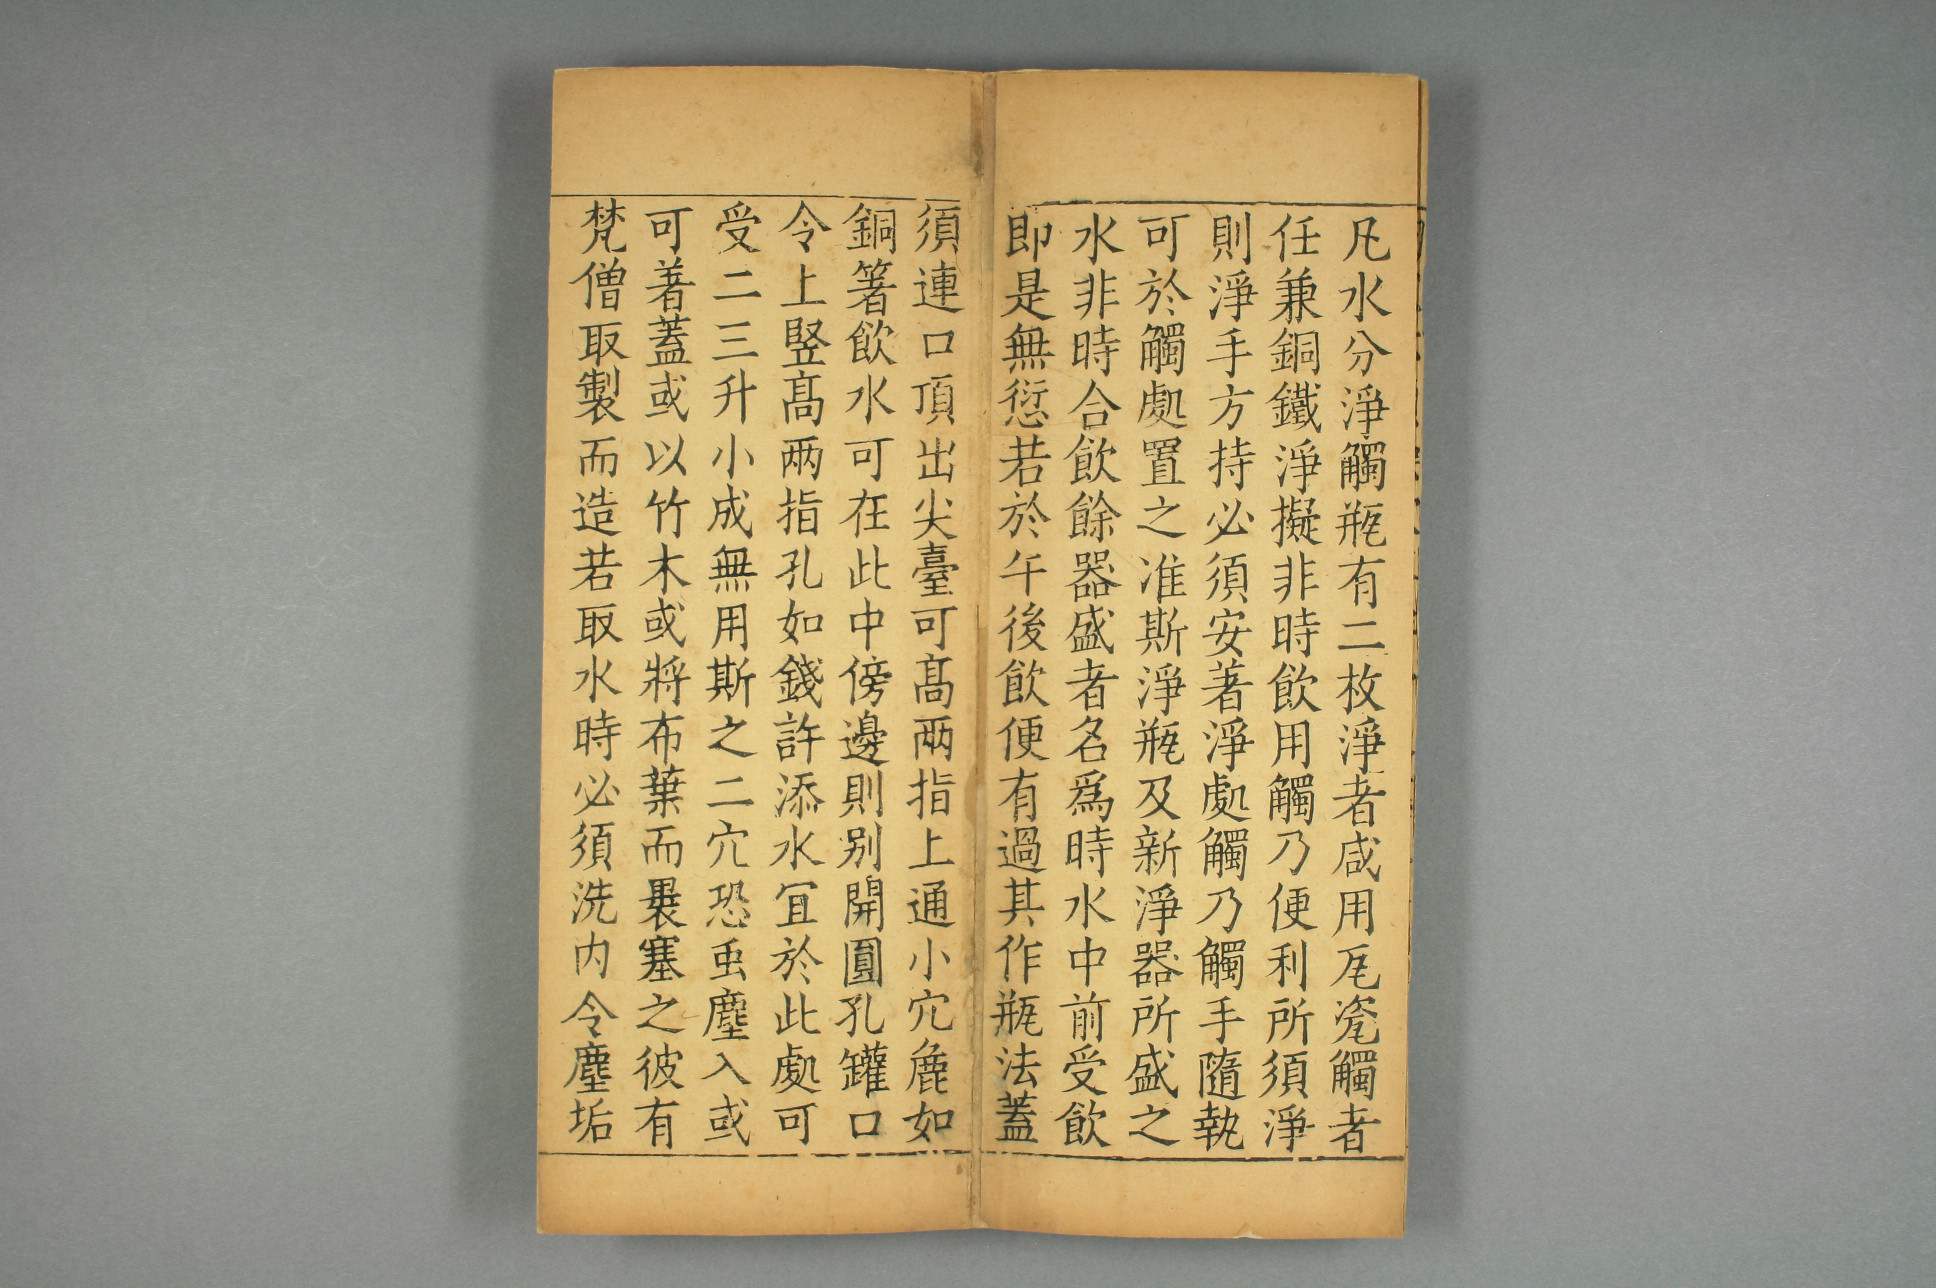 凡水分淨觸瓶有二枚淨者咸用瓦瓷觸者
任兼銅鐵淨擬非時飲用觸乃便利所須淨
則淨手方持必須安著淨處觸乃觸手隨執
可於觸處置之准斯淨瓶及新淨器所盛之
水非時合飲餘器盛者名爲時水中前受飲
即是無愆若於午後飲便有過其作瓶法蓋
須連口頂出尖臺可高兩指上通小穴麁如
銅箸飲水可在此中傍邊則別開圓孔罐口
令上豎高兩指孔如錢許添水冝於此處可
受二三升小成無用斯之二穴恐虫塵入或
可著蓋或以竹木或將布葉而褁塞之彼有
梵僧取製而造若取水時必須洗内令塵垢